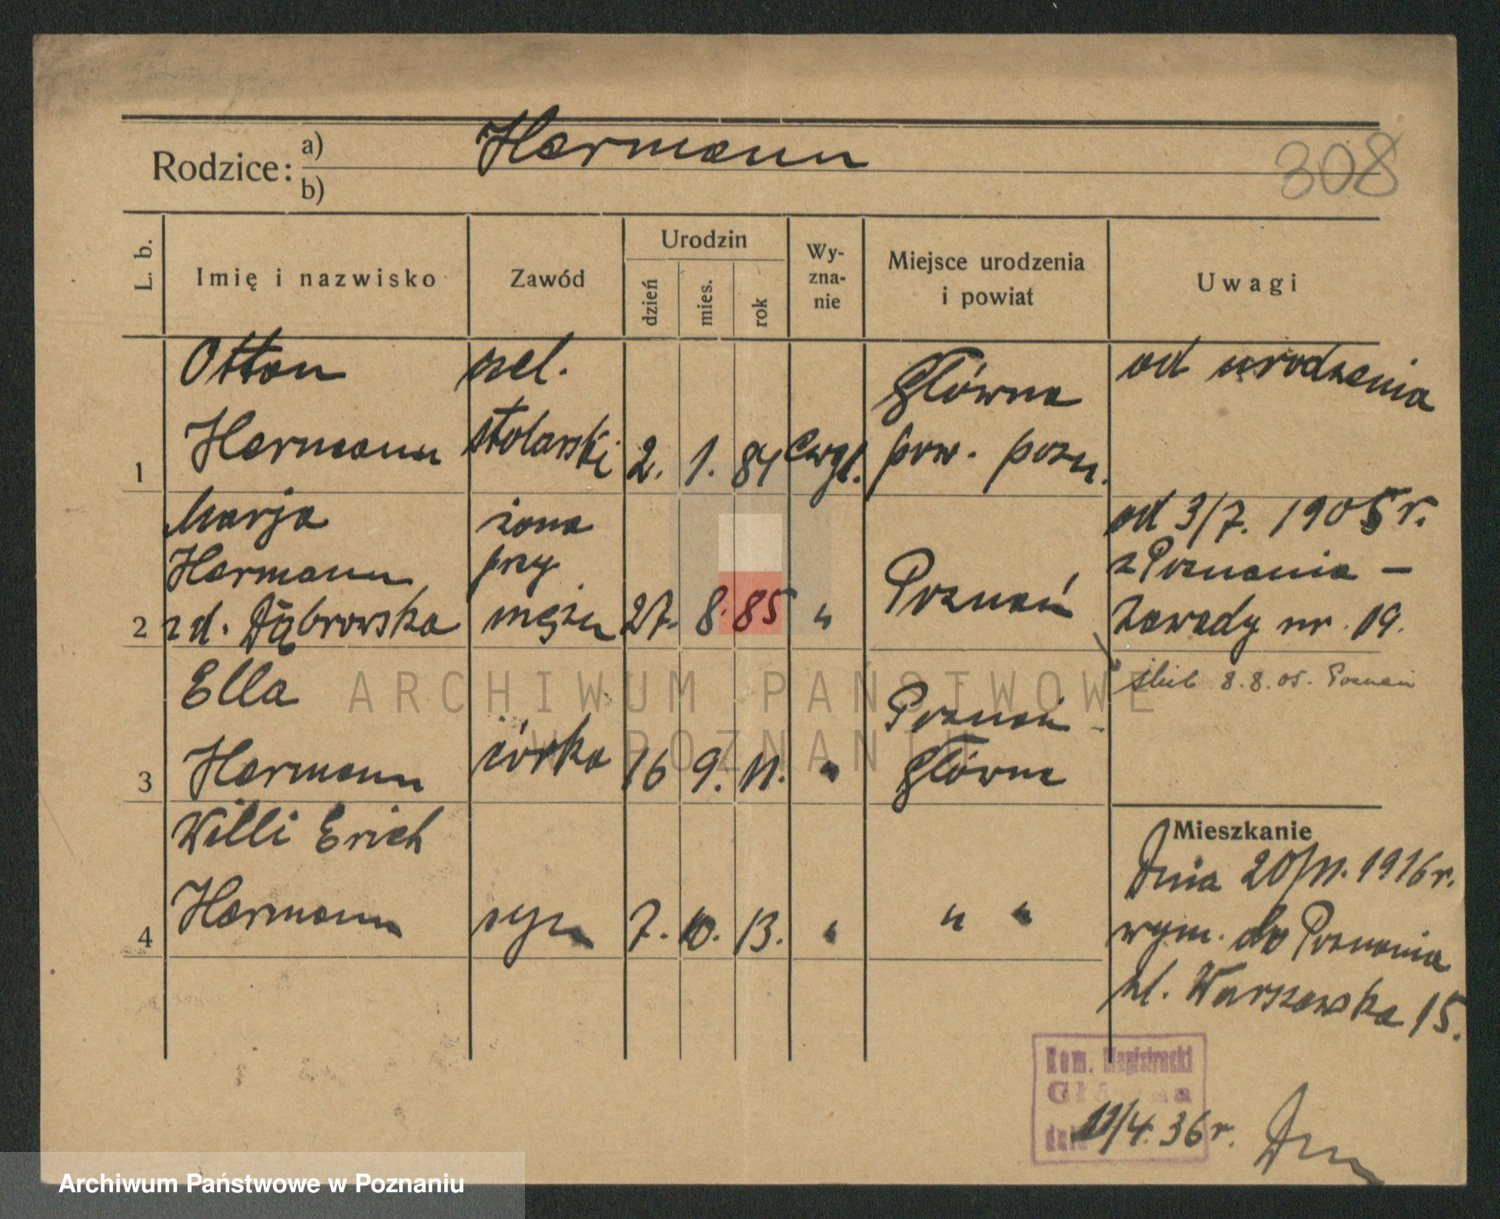 Rodzice: a) Harmann
b)
308
L. b.
Imię i nazwisko
Zawód
Urodzin
dzień
mies.
rok
Wy-
zna-
nie
Miejsce urodzenia
i powiat
Uwagi
Otton
Harmann
czel.
stolarski
1
2. 1. 84
ewgl.
Główna
pow. pozn.
od urodzenia
Marja
Harmann
zd. Dąbrowska
2
żona
przy
mężu
27. 8. 85 "
Poznań
od 3/7. 1905 r.
z Poznania –
Zawady nr. 19.
ślub 8.8.05. Poznań
Ella
Harmann
3
córka
16 9. 11. "
Poznań -
Główna
Willi Erich
Harmann
4
syn
7. 10. 13. "
" "
Mieszkanie
Dnia 20/11. 1916 r.
wym. do Poznania
ul. Warszawska 15.
Kom. Magistracki
Główna
dnia 11/4. 36 r.
ARCHIWUM PAŃSTWOWE
W POZNANIU
Archiwum Państwowe w Poznaniu